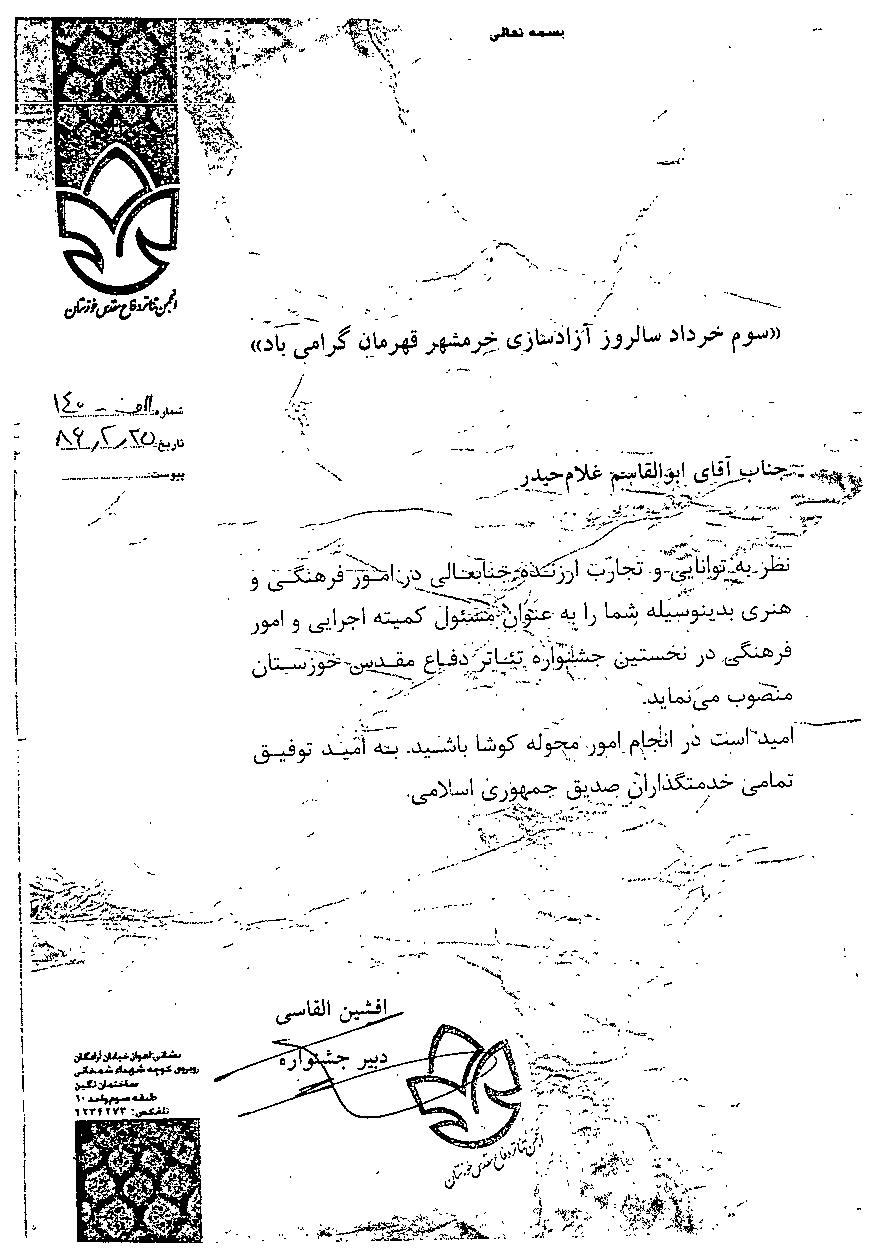 بسمه تعالی
انجمن تئاتر دفاع مقدس خوزستان
«سوم خرداد سالروز آزادسازی خرمشهر قهرمان گرامی باد»
شماره: ۱۴۰ - الف
تاریخ: ۸۶/۲/۲۵
پیوست:
جناب آقای ابوالقاسم غلام‌حیدر
نظر به توانایی و تجارب ارزنده جنابعالی در امور فرهنگی و
هنری بدینوسیله شما را به عنوان مسئول کمیته اجرایی و امور
فرهنگی در نخستین جشنواره تئاتر دفاع مقدس خوزستان
منصوب می‌نماید.
امید است در انجام امور محوله کوشا باشید. به امید توفیق
تمامی خدمتگذاران صدیق جمهوری اسلامی.
افشین القاسی
دبیر جشنواره
انجمن تئاتر دفاع مقدس خوزستان
نشانی: اهواز خیابان
روبروی کوچه شهدای شمخانی
ساختمان نگین
طبقه سوم واحد ۱۰
تلفکس: